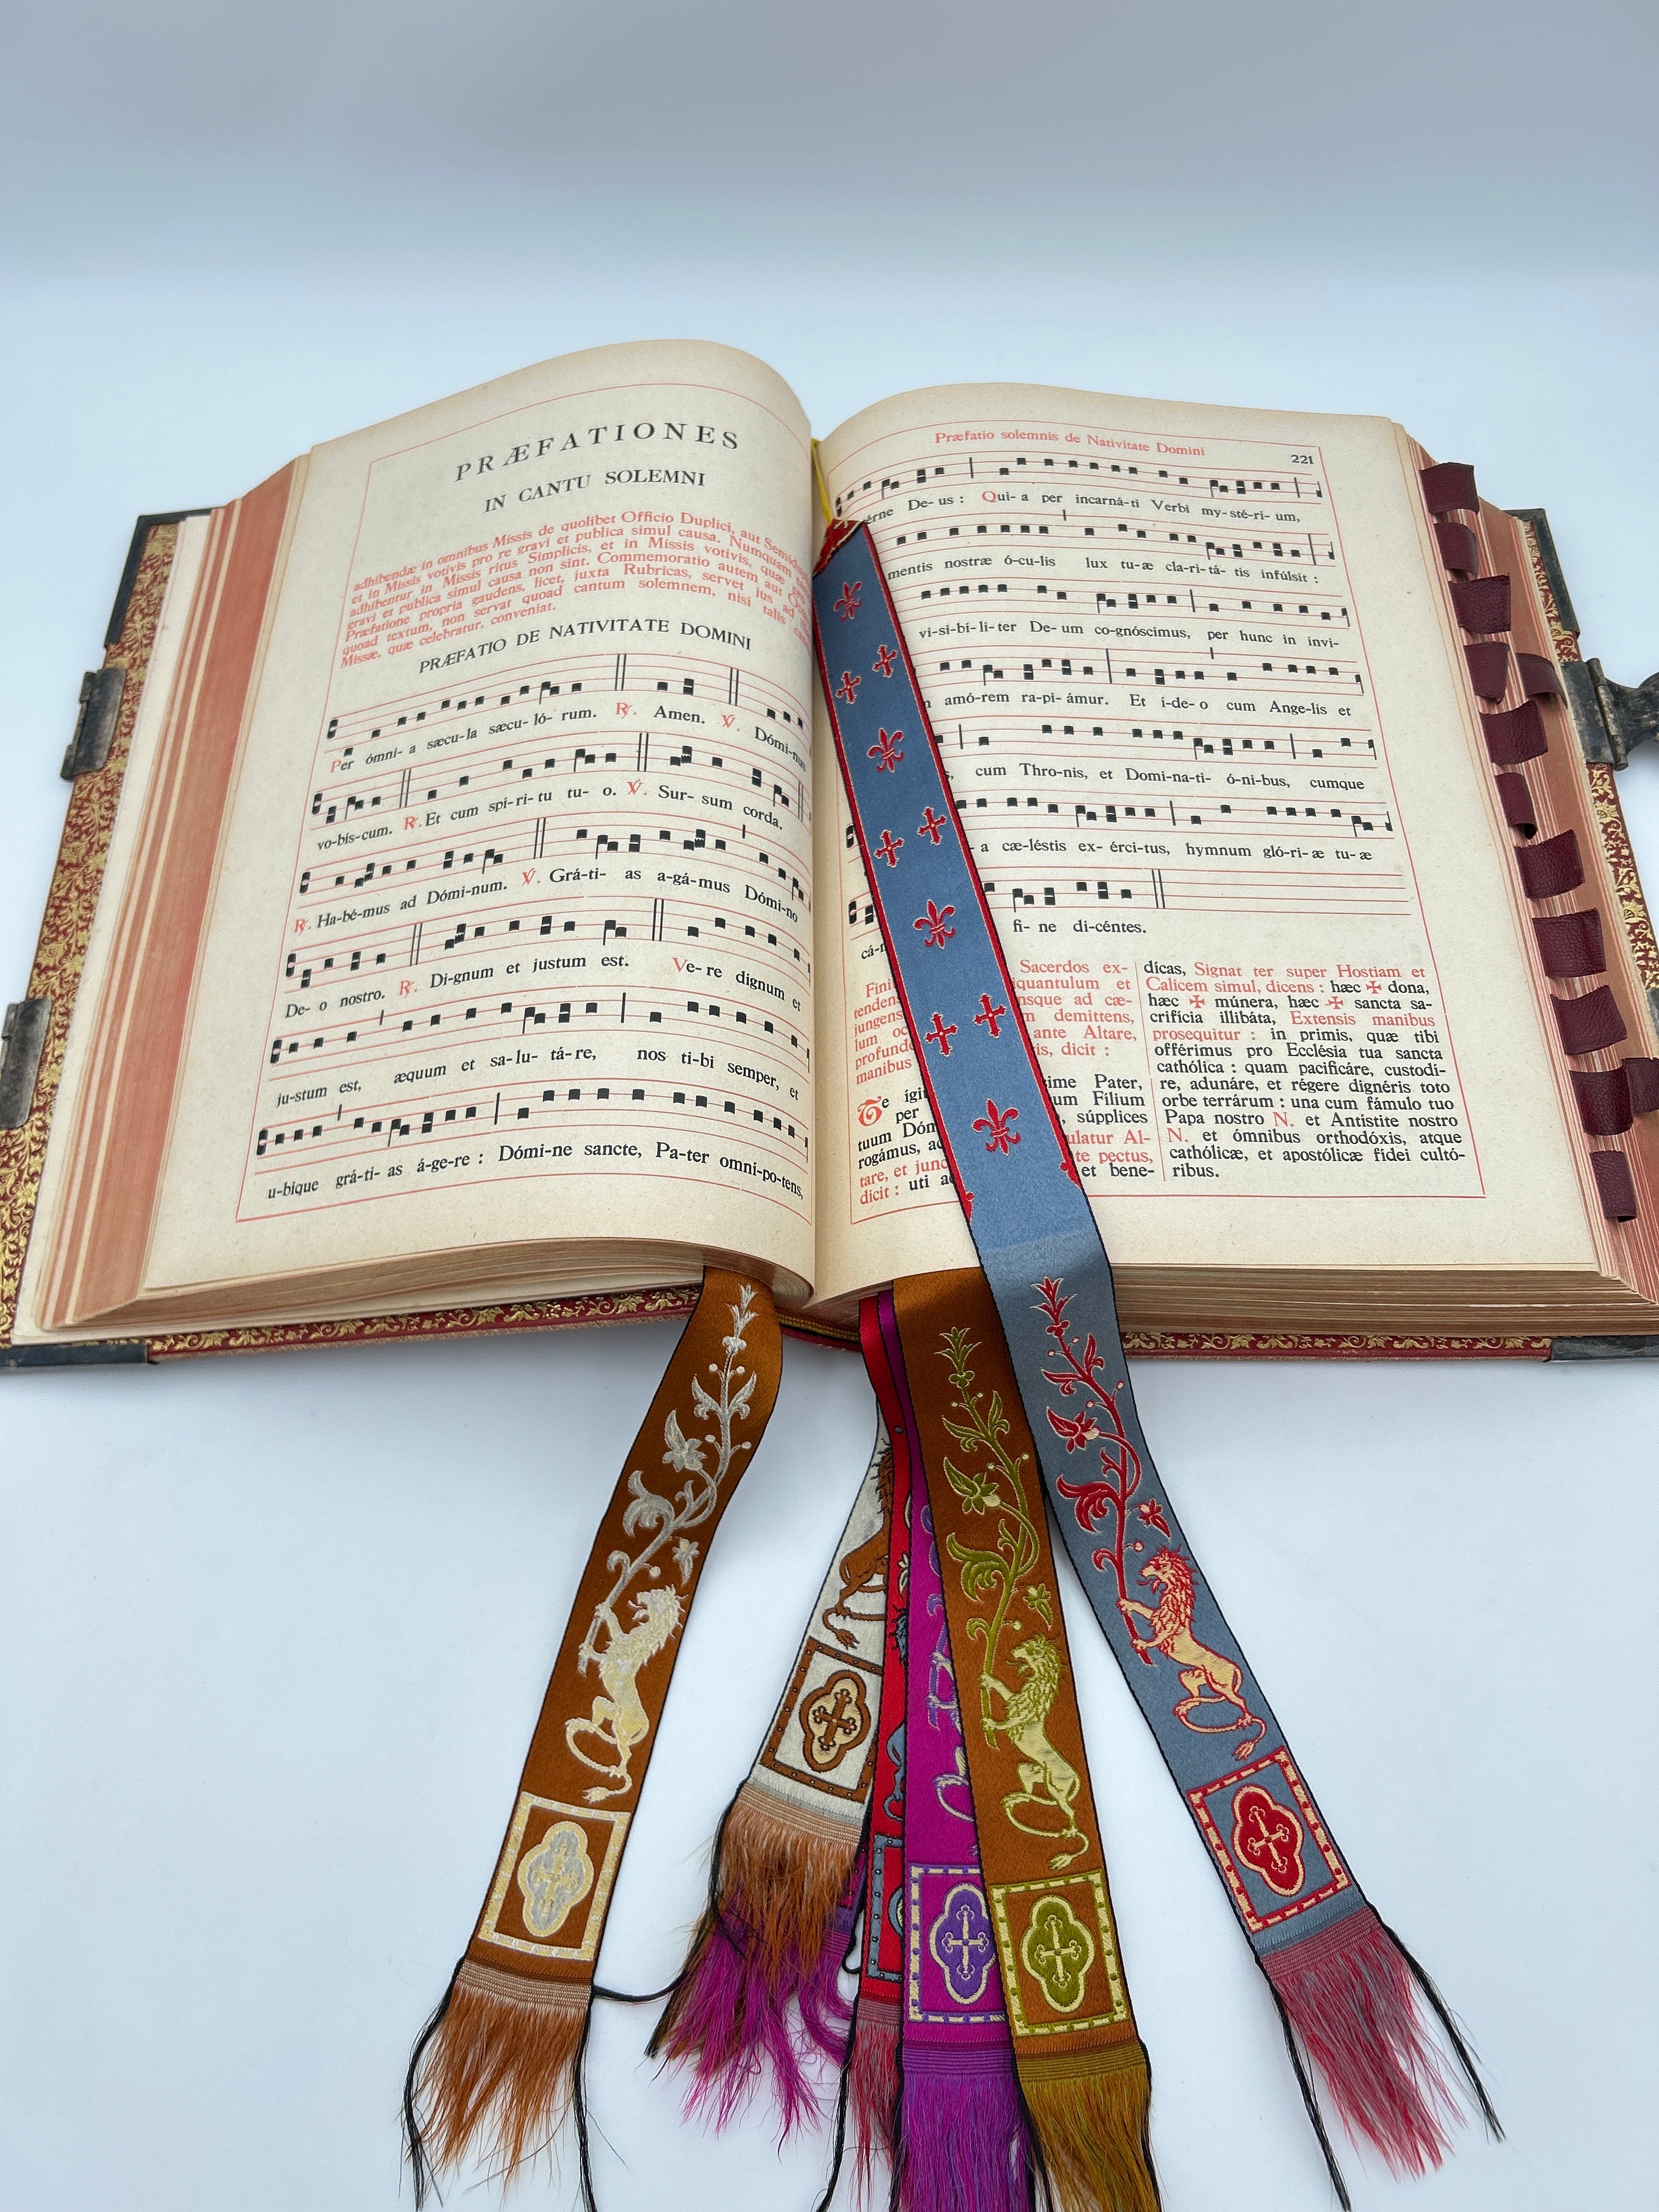 PRÆFATIONES
IN CANTU SOLEMNI
adhibendæ in omnibus Missis de quolibet Officio Duplici, aut
et in Missis votivis pro re gravi et publica simul causa. Numquam
adhibentur in Missis ritus Simplicis, et in Missis votivis, quæ
gravi et publica simul causa non sint. Commemoratio autem aut
Præfatione propria gaudens, licet, juxta Rubricas, servet jus ad
quoad textum, non servat quoad cantum solemnem, nisi talis
Missæ, quæ celebratur, conveniat.
PRÆFATIO DE NATIVITATE DOMINI
Per ómni- a sæcu-la sæcu- ló- rum. ℟. Amen. ℣. Dómi-nus
vo-bis-cum. ℟. Et cum spi-ri-tu tu- o. ℣. Sur- sum corda.
℟. Ha-bé-mus ad Dómi-num. ℣. Grá-ti- as a-gá-mus Dómi-no
De- o nostro. ℟. Di-gnum et justum est. Ve-re dignum et
ju-stum est, æquum et sa-lu- tá-re, nos ti-bi semper, et
u-bique grá-ti- as á-ge-re : Dómi-ne sancte, Pa-ter omni-po-tens,
Præfatio solemnis de Nativitate Domini 221
De- us : Qui- a per incarná-ti Verbi my-sté-ri- um,
mentis nostræ ó-cu-lis lux tu-æ cla-ri-tá- tis infúlsit :
vi-si-bí-li-ter De- um co-gnóscimus, per hunc in invi-
amó-rem ra-pi- ámur. Et í-de- o cum Ange-lis et
cum Thro-nis, et Domi-na-ti- ó-ni-bus, cumque
a cæ-léstis ex- érci-tus, hymnum gló-ri- æ tu-æ
fi- ne di-céntes.
Sacerdos ex-
tendens quantulum et
jungens usque ad cæ-
demittens,
ante Altare,
manibus dicit :
Te
per
tuum Filium
rogámus, súpplices
tare, et
dicit : uti et bene-
dícas, Signat ter super Hostiam et
Calicem simul, dicens : hæc ✠ dona,
hæc ✠ múnera, hæc ✠ sancta sa-
crifícia illibáta, Extensis manibus
prosequitur : in primis, quæ tibi
offérimus pro Ecclésia tua sancta
cathólica : quam pacificáre, custodí-
re, adunáre, et régere dignéris toto
orbe terrárum : una cum fámulo tuo
Papa nostro N. et Antístite nostro
N. et ómnibus orthodóxis, atque
cathólicæ, et apostólicæ fídei cultó-
ribus.